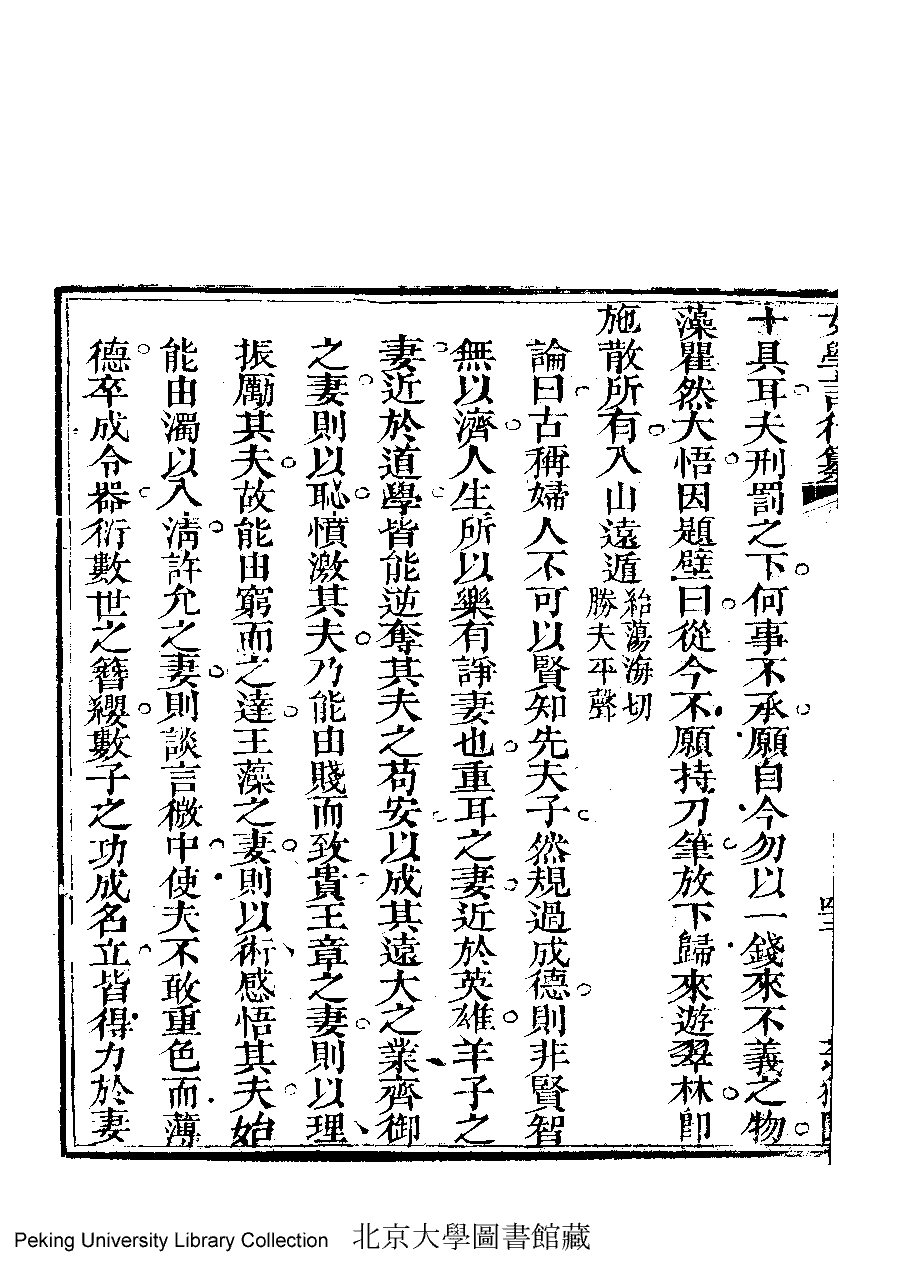 女學言行纂
十具耳夫刑罰之下何事不承願自今勿以一錢來不義之物
藻瞿然大悟因題壁曰從今不願持刀筆放下歸來遊翠林卽
施散所有入山遠遁
紿蕩海切
勝夫平聲
論曰古稱婦人不可以賢知先夫子然規過成德則非賢智
無以濟人生所以樂有諍妻也重耳之妻近於英雄羊子之
妻近於道學皆能逆奪其夫之苟安以成其遠大之業齊御
之妻則以恥憤激其夫乃能由賤而致貴王章之妻則以理
振勵其夫故能由窮而之達王藻之妻則以術感悟其夫始
能由濁以入淸許允之妻則談言微中使夫不敢重色而薄
德卒成令器衍數世之簪纓數子之功成名立皆得力於妻
Peking University Library Collection 北京大學圖書館藏